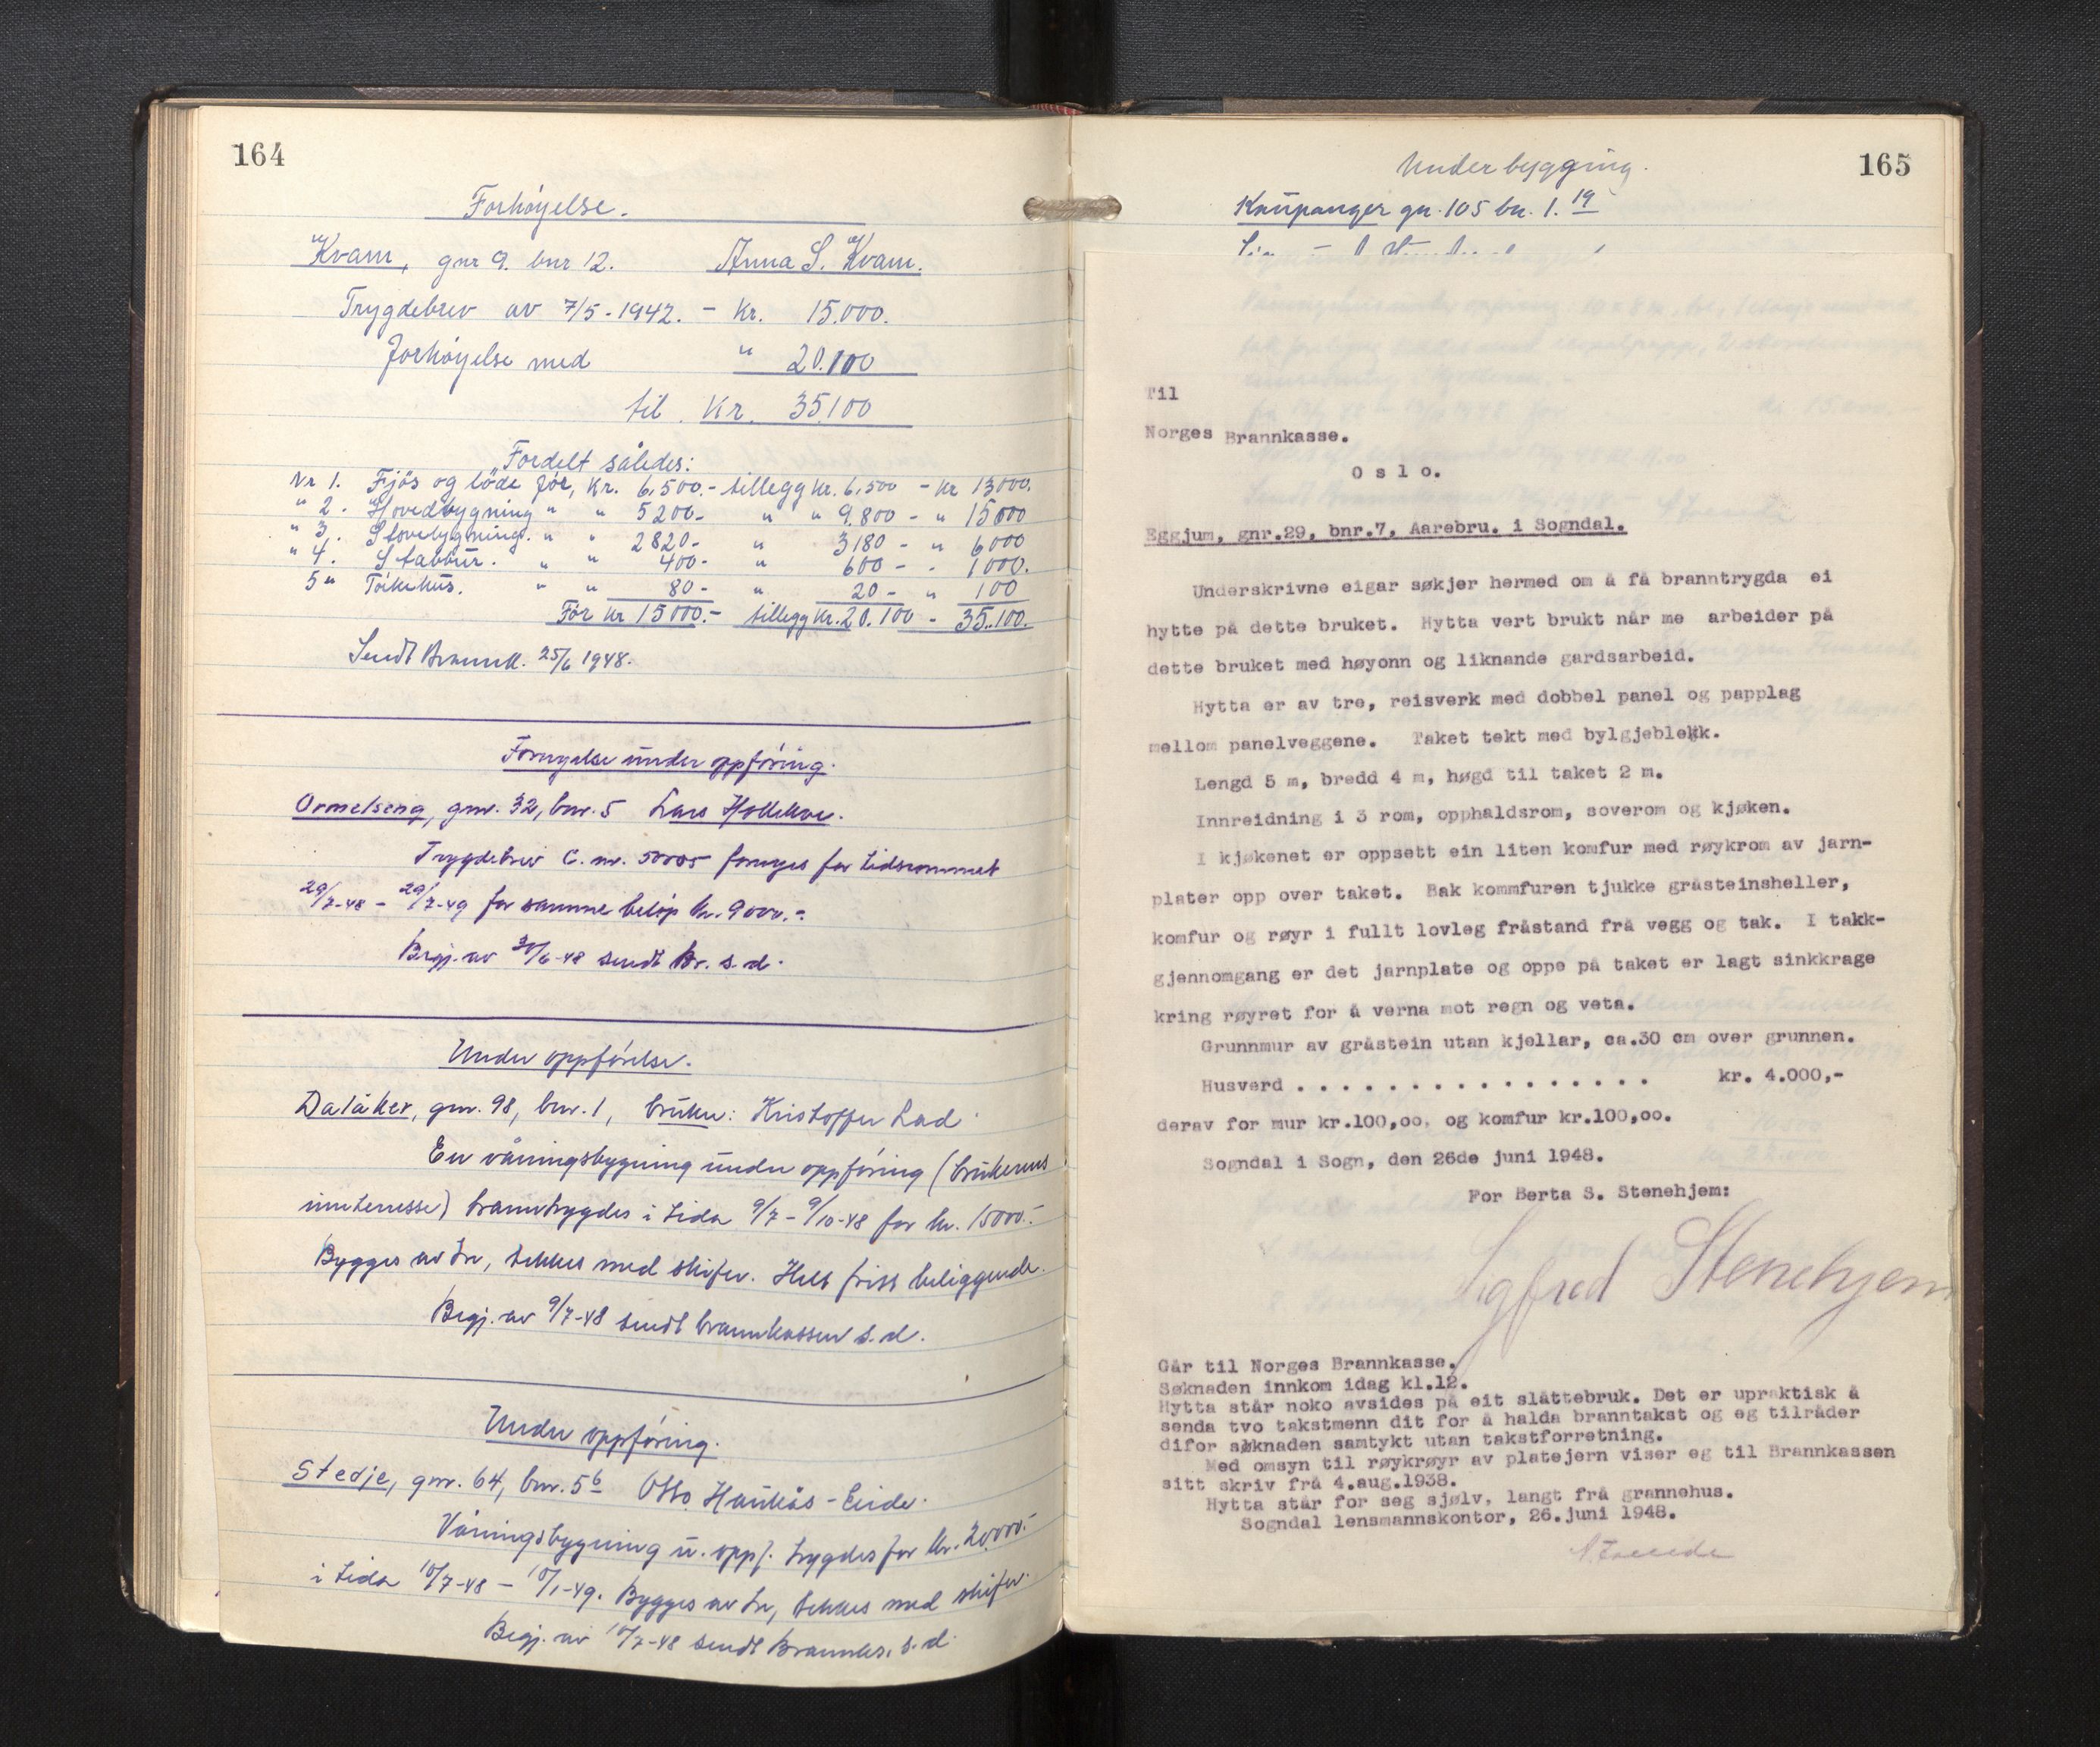 164
Forhøyelse.
Kvam, gnr 9. bnr 12. Anna S. Kvam.
Trygdebrev av 7/5-1942. - Kr. 15.000.
Forhøyelse med " 20.100
til. Kr. 35100
Fordelt således:
Nr 1. Fjös og löde för, Kr. 6.500.- tillegg Kr. 6.500 - Kr 13000.
" 2. Hovedbygning " " 5200- " " 9.800 - " 15000
" 3. Stovebygning. " " 2820- " 3180 - " 6000
" 4. Stabbur. " " 400- " 600 - . 1000.
5 " Törkehus. " " 80- " 20- " 100
För Kr 15000.- tillegg Kr. 20.100 - 35.100.
Sendt Brannk. 25/6 1948.
Fornyelse under oppföring.
Ormelseng, gnr. 32, bnr. 5 Lars
Trygdebrev C. nr. 50005 fornyes for tidsrommet
29/7-48 - 29/7-49 for samme beløp kr. 9000.-
Begj. av 30/6-48 sendt Br. s.d.
Under oppförelse.
Dalåker, gnr. 98, bnr. 1, bruker: Kristoffer Lad.
En våningsbygning under oppföring (brukerens
interesse) branntrygdes i tida 9/7 - 9/10-48 for kr. 15000.-
Bygges av tre, tekkes med skifer. Helt fritt beliggende.
Begj. av 9/7-48 sendt brannkassen s.d.
Under oppföring.
Stedje, gnr. 64, bnr. 56 Otto Haukås-Eide.
Våningsbygning u. oppf. trygdes for kr. 20.000.-
i tida 10/7-48 - 10/1-49. Bygges av tre, tekkes med skifer.
Begj. av 10/7-48 sendt Brannks. s.d.
165
Under bygging.
Kaupanger gn. 105 bn. 1. 19
Til
Norges Brannkasse.
Oslo.
Eggjum, gnr.29, bnr.7, Aarebru. i Sogndal.
Underskrivne eigar søkjer hermed om å få branntrygda ei
hytte på dette bruket. Hytta vert brukt når me arbeider på
dette bruket med høyonn og liknande gardsarbeid.
Hytta er av tre, reisverk med dobbel panel og papplag
mellom panelveggene. Taket tekt med bylgjeblekk.
Lengd 5 m, bredd 4 m, høgd til taket 2 m.
Innreidning i 3 rom, opphaldsrom, soverom og kjøken.
I kjøkenet er oppsett ein liten komfur med røykrom av jarn-
plater opp over taket. Bak kommfuren tjukke gråsteinsheller,
komfur og røyr i fullt lovleg fråstand frå vegg og tak. I takk-
gjennomgang er det jarnplate og oppe på taket er lagt sinkkrage
kring røyret for å verna mot regn og veta.
Grunnmur av gråstein utan kjellar, ca.30 cm over grunnen.
Husverd . . . . . . . . . . . . . . . . kr. 4.000,-
derav for mur kr.100,oo, og komfur kr.100,oo.
Sogndal i Sogn, den 26de juni 1948.
For Berta S. Stenehjem:
Sigfred Stenehjem
Går til Norges Brannkasse.
Søknaden innkom idag kl.12.
Hytta står noko avsides på eit slåttebruk. Det er upraktisk å
senda tvo takstmenn dit for å halda branntakst og eg tilråder
difor søknaden samtykt utan takstforretning.
Med omsyn til røykrøyr av platejern viser eg til Brannkassen
sitt skriv frå 4.aug.1938.
Hytta står for seg sjølv, langt frå grannehus.
Sogndal lensmannskontor, 26.juni 1948.